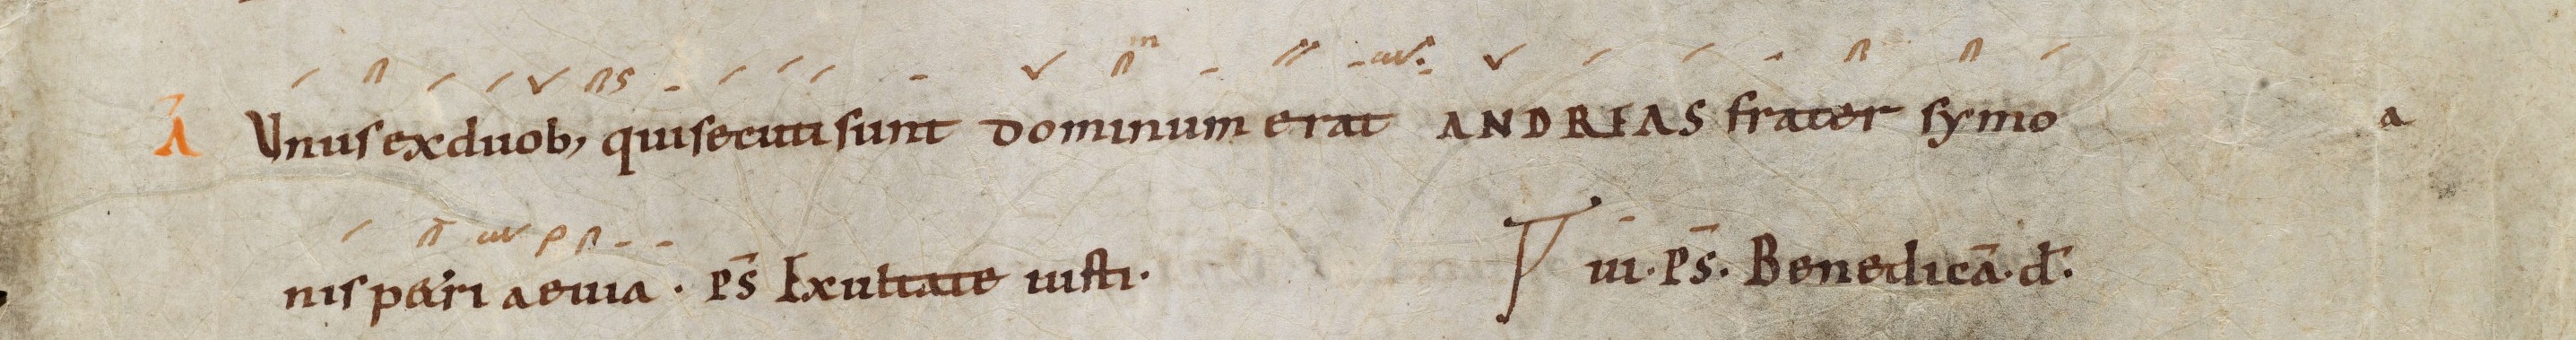 A Vnus ex duob; qui secuti sunt dominum erat ANDREAS frater symo a
nis petri aeuia · ps̄ Exultate iusti · iii · Ps̄ · Benedicā · d̄ ·